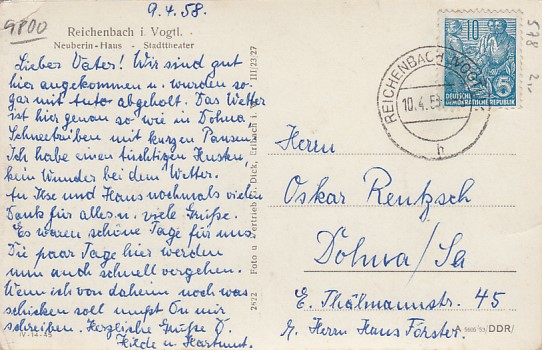 9.4.58.
9800
Reichenbach i. Vogtl.
Neuberin-Haus - Stadttheater
Lieber Vater! Wir sind gut
hier angekommen u. wurden so-
gar mit Auto abgeholt. Das Wetter
ist hier genau so wie in Dohna
Schneetreiben mit kurzen Pausen.
Ich habe einen tüchtigen Husten,
kein Wunder bei dem Wetter.
An Ilse und Hans nochmals vielen
Dank für alles u. viele Grüße.
Es waren schöne Tage für uns.
Die paar Tage hier werden
nun auch schnell vergehen.
Wenn ich von daheim noch was
schicken soll mußt Du mir
schreiben. Herzliche Grüße
Hilde u. Hartmut.
IV-14-45
2922 Foto u. Vertrieb: Dick, Erlbach i. III/23/27
10
5
DEUTSCHE
DEMOKRATISCHE REPUBLIK
REICHENBACH (VOGTL)
10.4.58
h
578
Herrn
Oskar Rentzsch
Dohna/Sa
E. Thälmannstr. 45
b. Herrn Hans Förster.
A DDR/